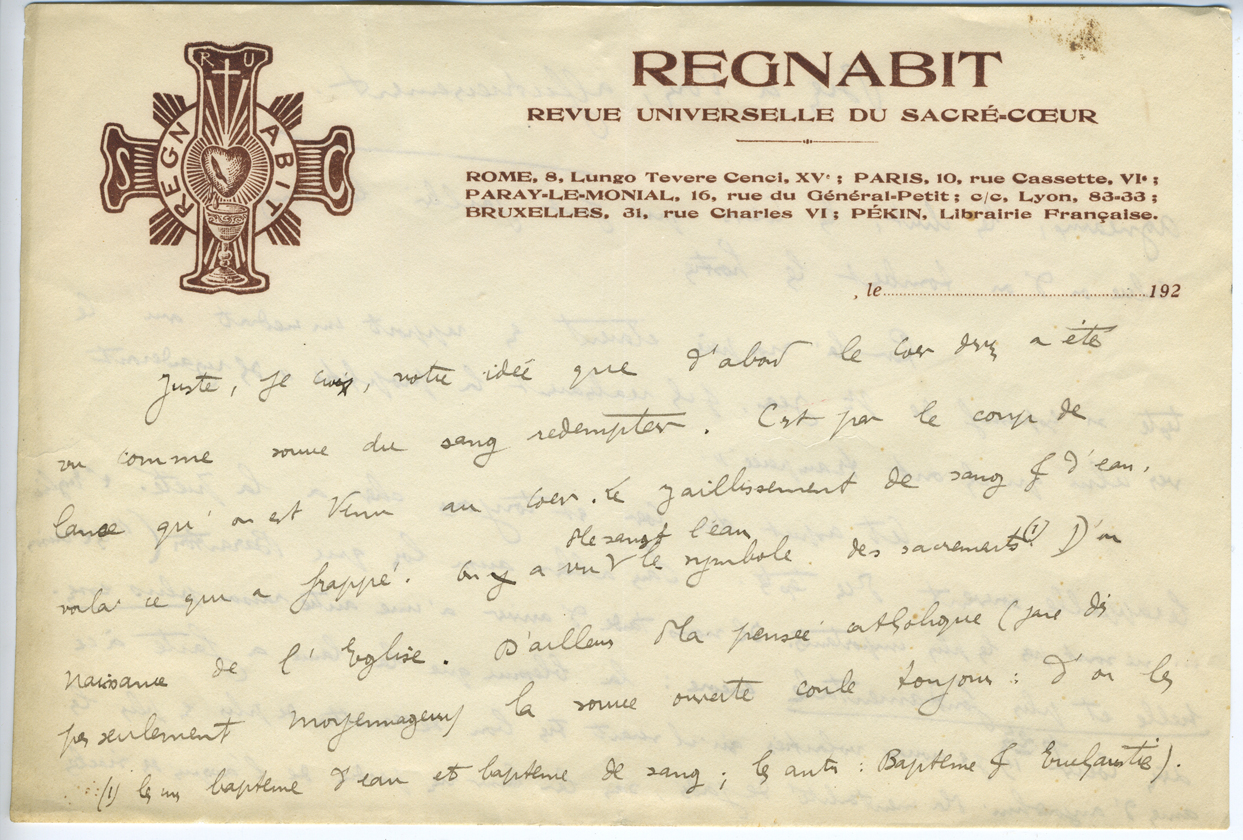 R U
S C
REGN ABIT
REGNABIT
REVUE UNIVERSELLE DU SACRÉ-CŒUR
ROME, 8, Lungo Tevere Cenci, XVe ; PARIS, 10, rue Cassette, VIe ;
PARAY-LE-MONIAL, 16, rue du Général-Petit ; c/c, Lyon, 83-33 ;
BRUXELLES, 31, rue Charles VI ; PÉKIN, Librairie Française.
, le 192
Juste, je crois, votre idée que d'abord le Cœur a été
vu comme source du sang redempteur. C'est par le coup de
lance qu'on est venu au Cœur. Le jaillissement de sang & d'eau,
voila ce qui a frappé. On y a vu le symbole des sacrements (1) D'où
le sang & l'eau
naissance de l'Eglise. D'ailleurs la pensée catholique (je dis
pas seulement moyennageux) la source ouverte coule toujours : d'où les
(1) les uns baptême d'eau et baptême de sang ; les autres : Baptême & Eucharistie).